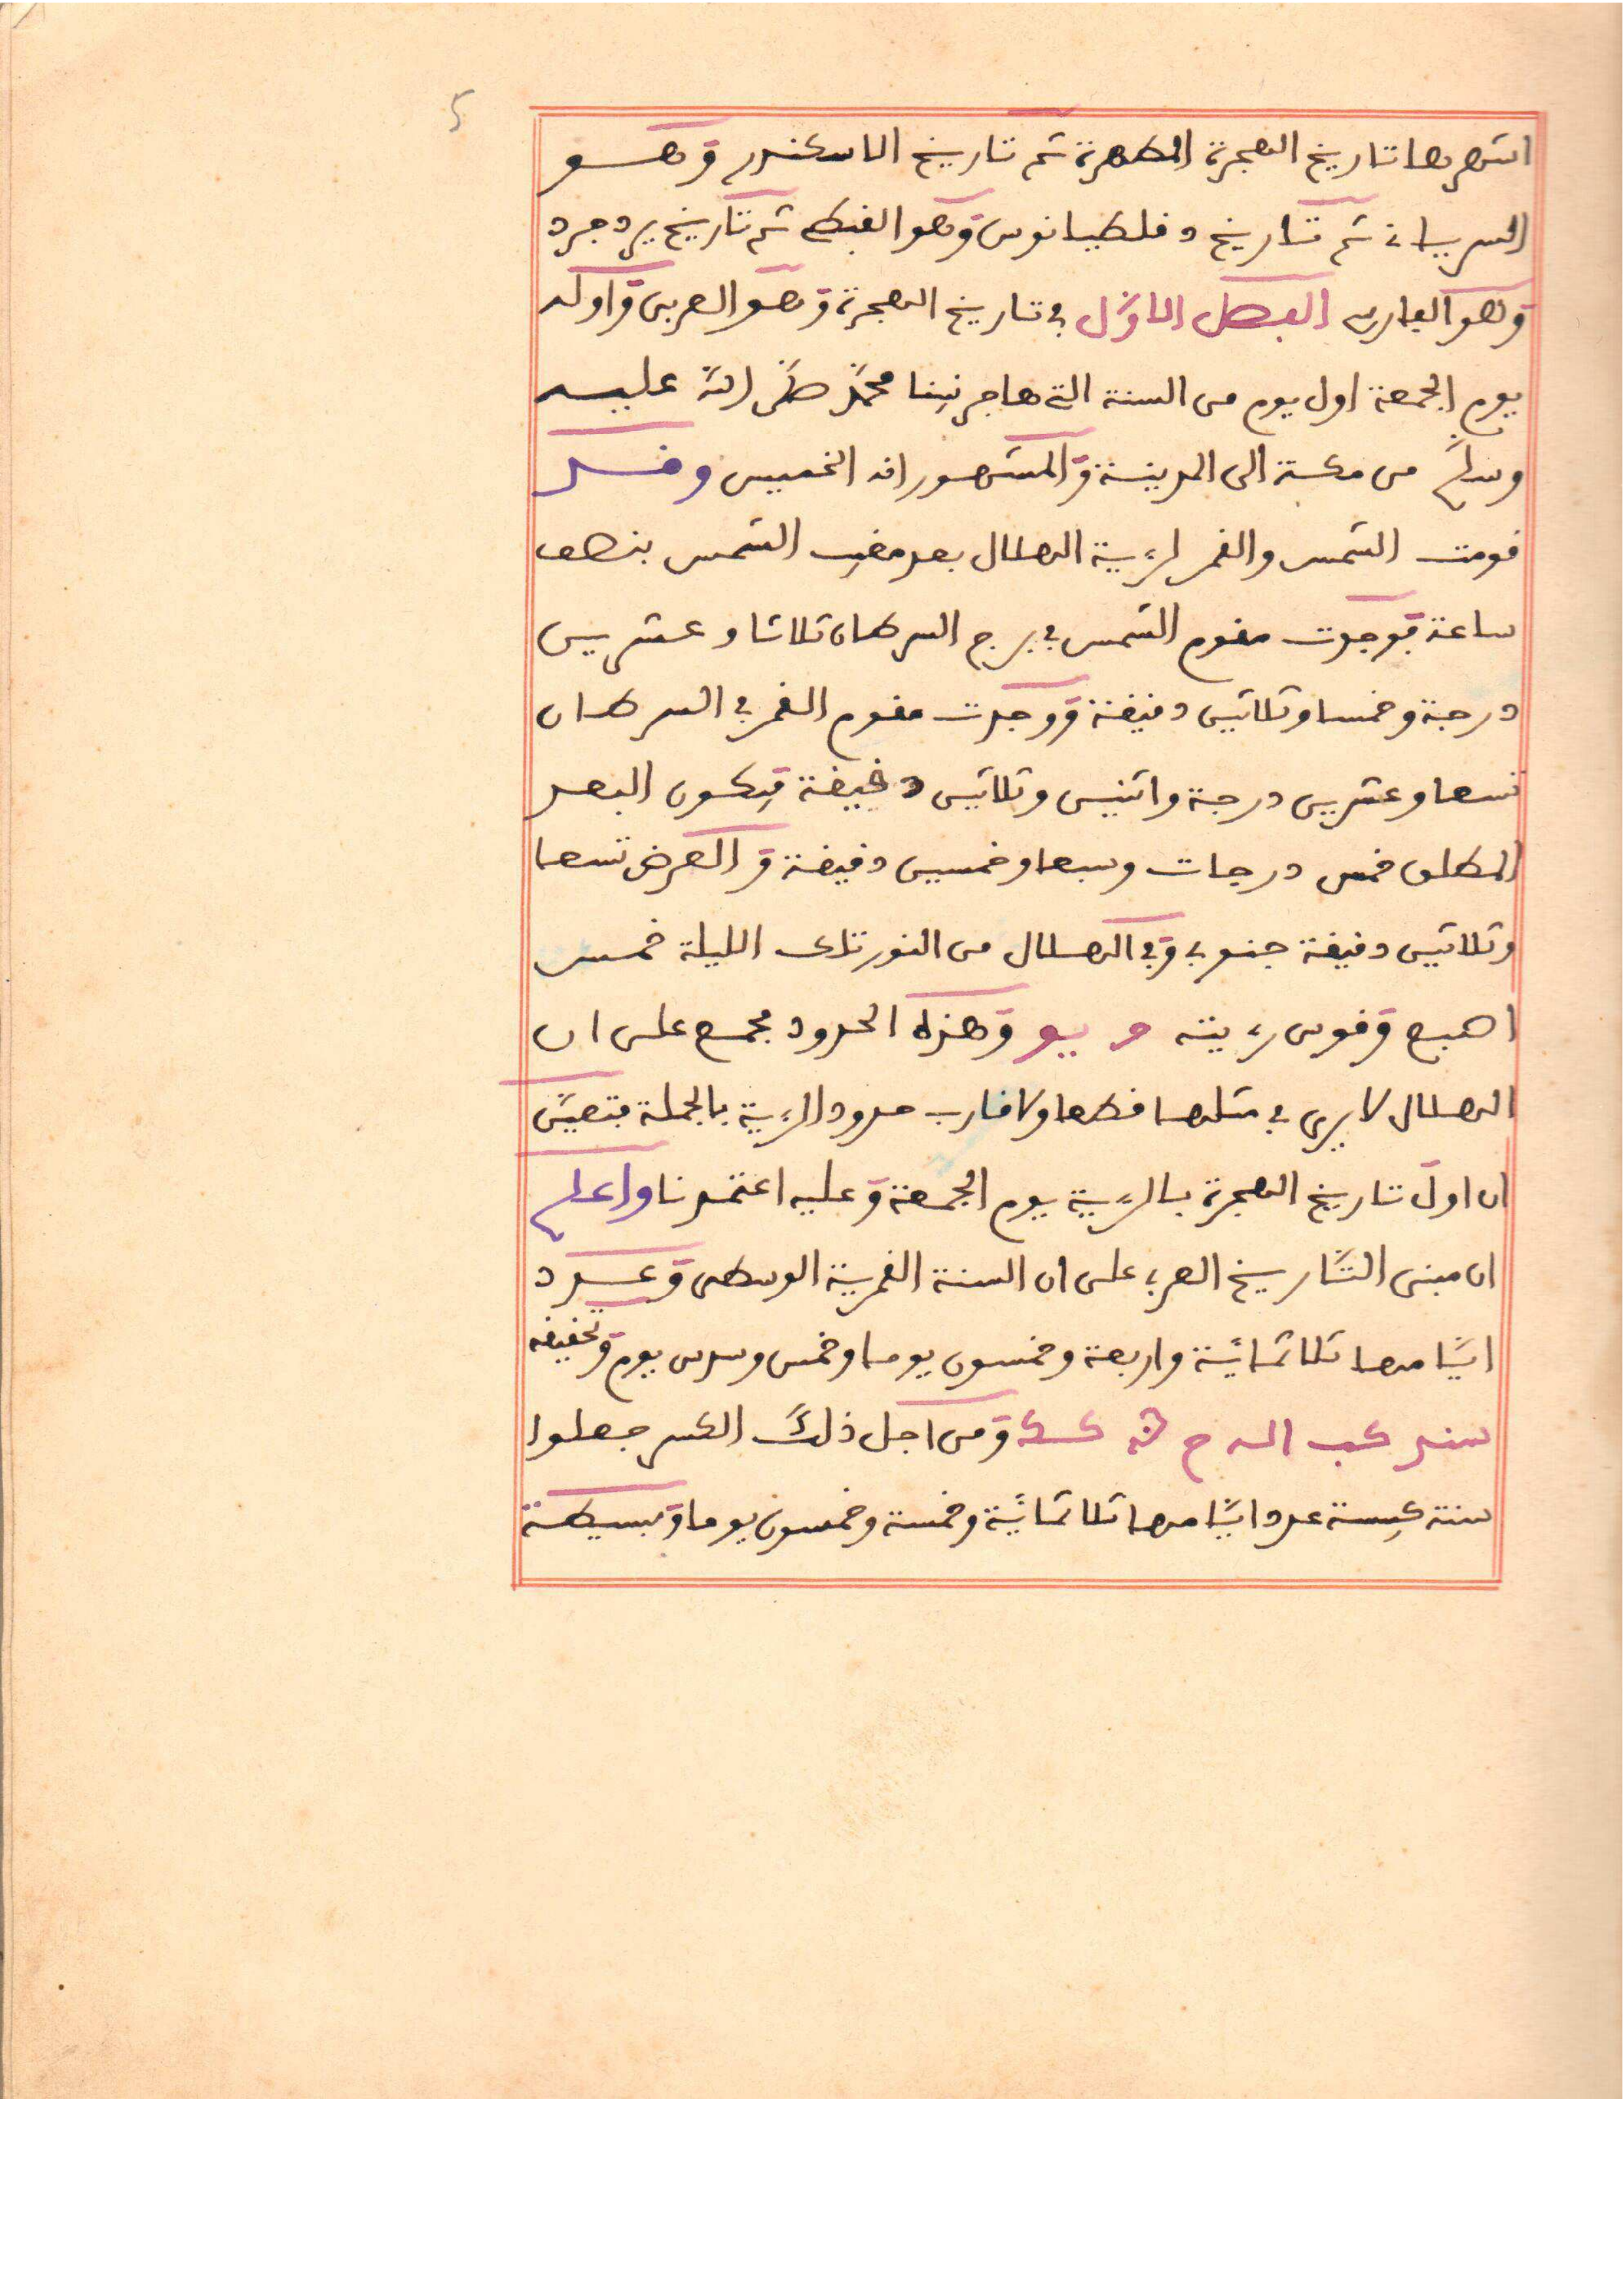 اشهرها تاريخ الهجرة المطهرة ثم تاريخ الاسكندر وهو
السرياني ثم تاريخ دقلطيانوس وهو القبطي ثم تاريخ يزدجرد
وهو الفارسي الفصل الاول في تاريخ الهجرة وهو العربي واوله
يوم الجمعة اول يوم من السنة التي هاجر نبينا محمد صلى الله عليه
وسلم من مكة الى المدينة والمشهور انه الخميس وقد
قومت الشمس والقمر لرؤية الهلال بعد مغيب الشمس بنصف
ساعة فوجدت مقوم الشمس في برج السرطان ثلاثا وعشرين
درجة وخمسا وثلاثين دقيقة ووجدت مقوم القمر في السرطان
تسعا وعشرين درجة واثنين وثلاثين دقيقة فيكون البعد
المطلق خمس درجات وسبعا وخمسين دقيقة والعرض تسعا
وثلاثين دقيقة جنوبي وفي الهلال من النور تلك الليلة خمس
اصبع وقوس رؤيته و يو وهذه الحدود مجمع على ان
الهلال لا يرى في مثلها قطعا ولا قارب حدود الرؤية بالجملة فتعين
ان اول تاريخ الهجرة بالرؤية يوم الجمعة وعليه اعتمدنا واعلم
ان مبنى التاريخ العربي على ان السنة القمرية الوسطى وعدد
ايامها ثلاثمائة واربعة وخمسون يوما وخمس وسدس يوم وتحقيقه
سند كب اله ح كسك ومن اجل ذلك الكسر جعلوا
سنة كبيسة عدد ايامها ثلاثمائة وخمسة وخمسون يوما وبسيطة